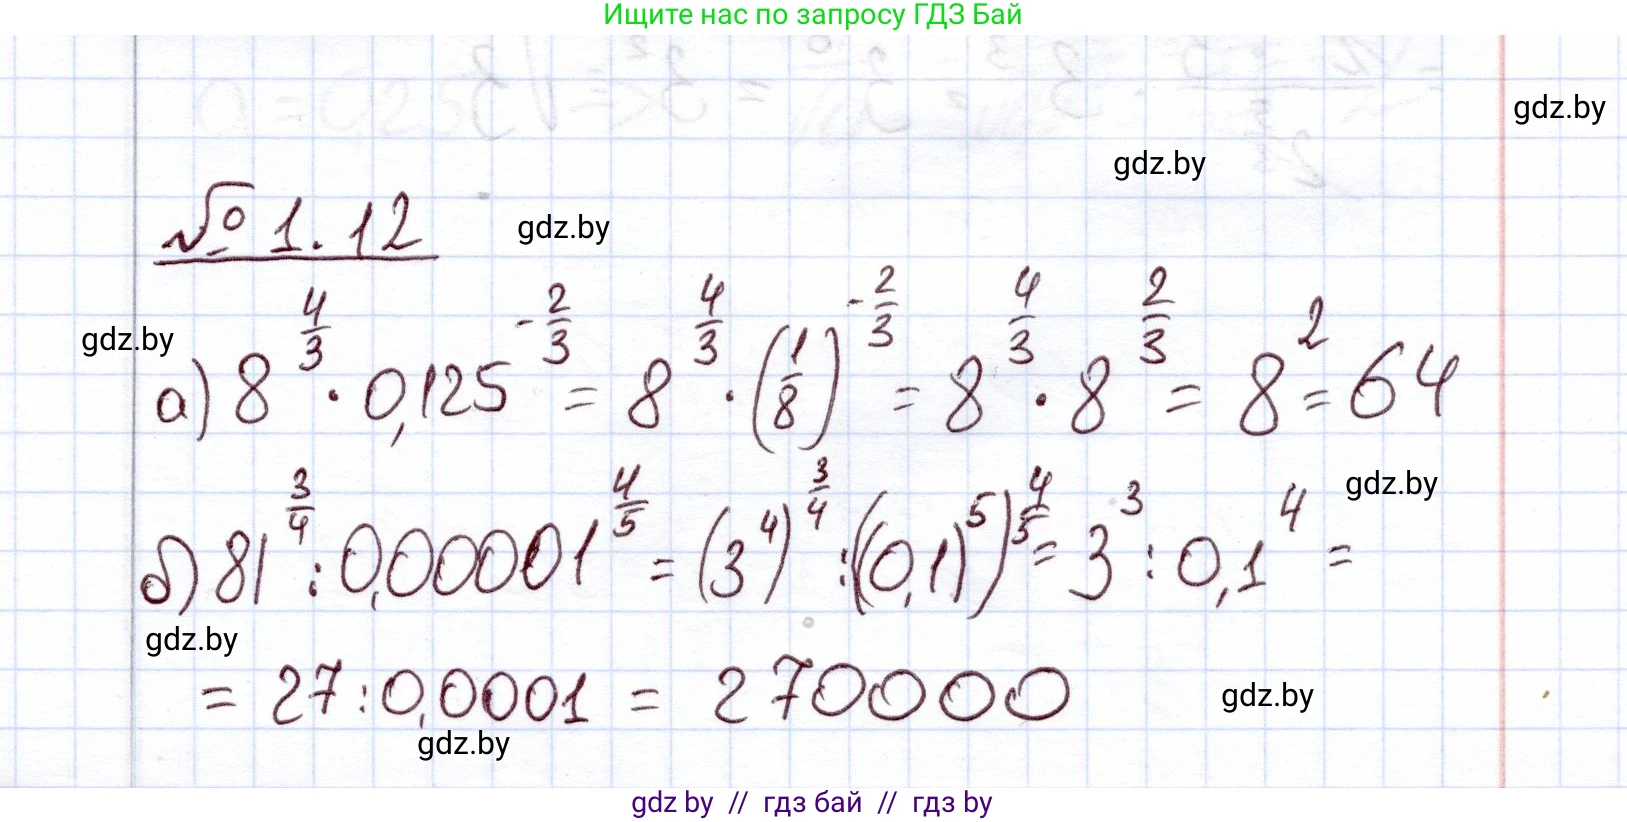 Ищите нас по запросу ГДЗ Бай
gdz.by
gdz.by
№ 1.12
gdz.by
gdz.by
а) 8^(4/3) · 0,125^(-2/3) = 8^(4/3) · (1/8)^(-2/3) = 8^(4/3) · 8^(2/3) = 8^2 = 64
gdz.by
б) 81^(3/4) : 0,00001^(4/5) = (3^4)^(3/4) : ((0,1)^5)^(4/5) = 3^3 : 0,1^4 =
gdz.by
= 27 : 0,0001 = 270000
gdz.by
gdz.by
gdz by // гдз бай // гдз by